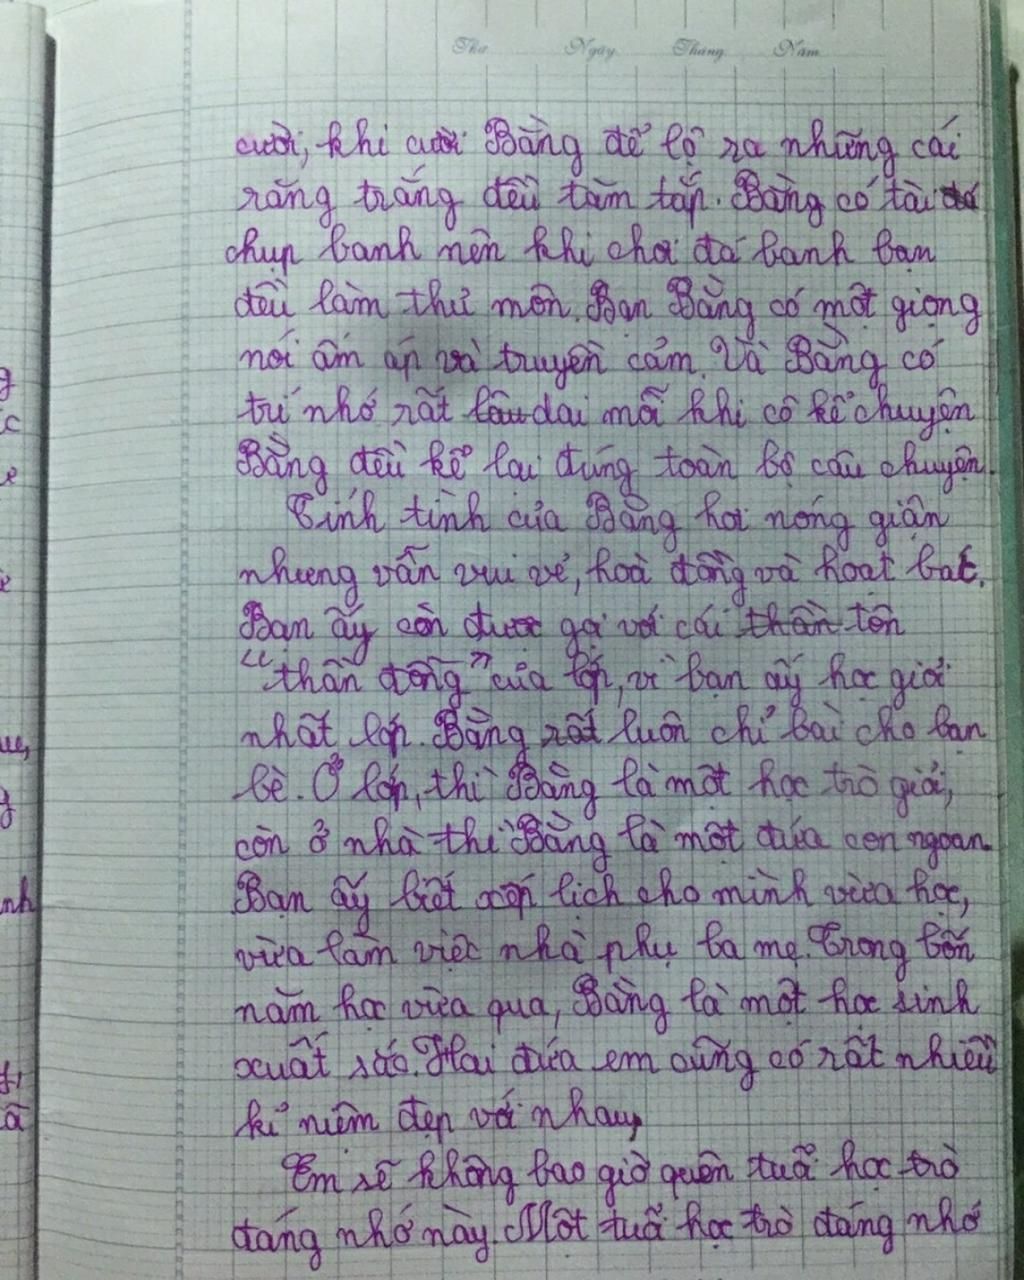 Thứ Ngày Tháng Năm
cười, khi cười Bằng để lộ ra những cái
răng trắng đều tăm tắp. Bằng có tài
chụp banh nên khi chơi đá banh bạn
đều làm thủ môn. Bạn Bằng có một giọng
nói ấm áp và truyền cảm. Và Bằng có
trí nhớ rất lâu dai mỗi khi cô kể chuyện
Bằng đều kể lại đúng toàn bộ câu chuyện.
Tính tình của Bằng hơi nóng giận
nhưng vẫn vui vẻ, hoà đồng và hoạt bát.
Bạn ấy còn được gọi với cái thần tên
"thần đồng" của lớp, vì bạn ấy học giỏi
nhất lớp. Bằng rất luôn chỉ bài cho bạn
bè. Ở lớp, thì Bằng là một học trò giỏi,
còn ở nhà thì Bằng là một đứa con ngoan.
Bạn ấy biết xếp lịch cho mình vừa học,
vừa làm việc nhà phụ ba mẹ. Trong bốn
năm học vừa qua, Bằng là một học sinh
xuất sắc. Hai đứa em cũng có rất nhiều
kỉ niệm đẹp với nhau,
Em sẽ không bao giờ quên tuổi học trò
đáng nhớ này. Một tuổi học trò đáng nhớ